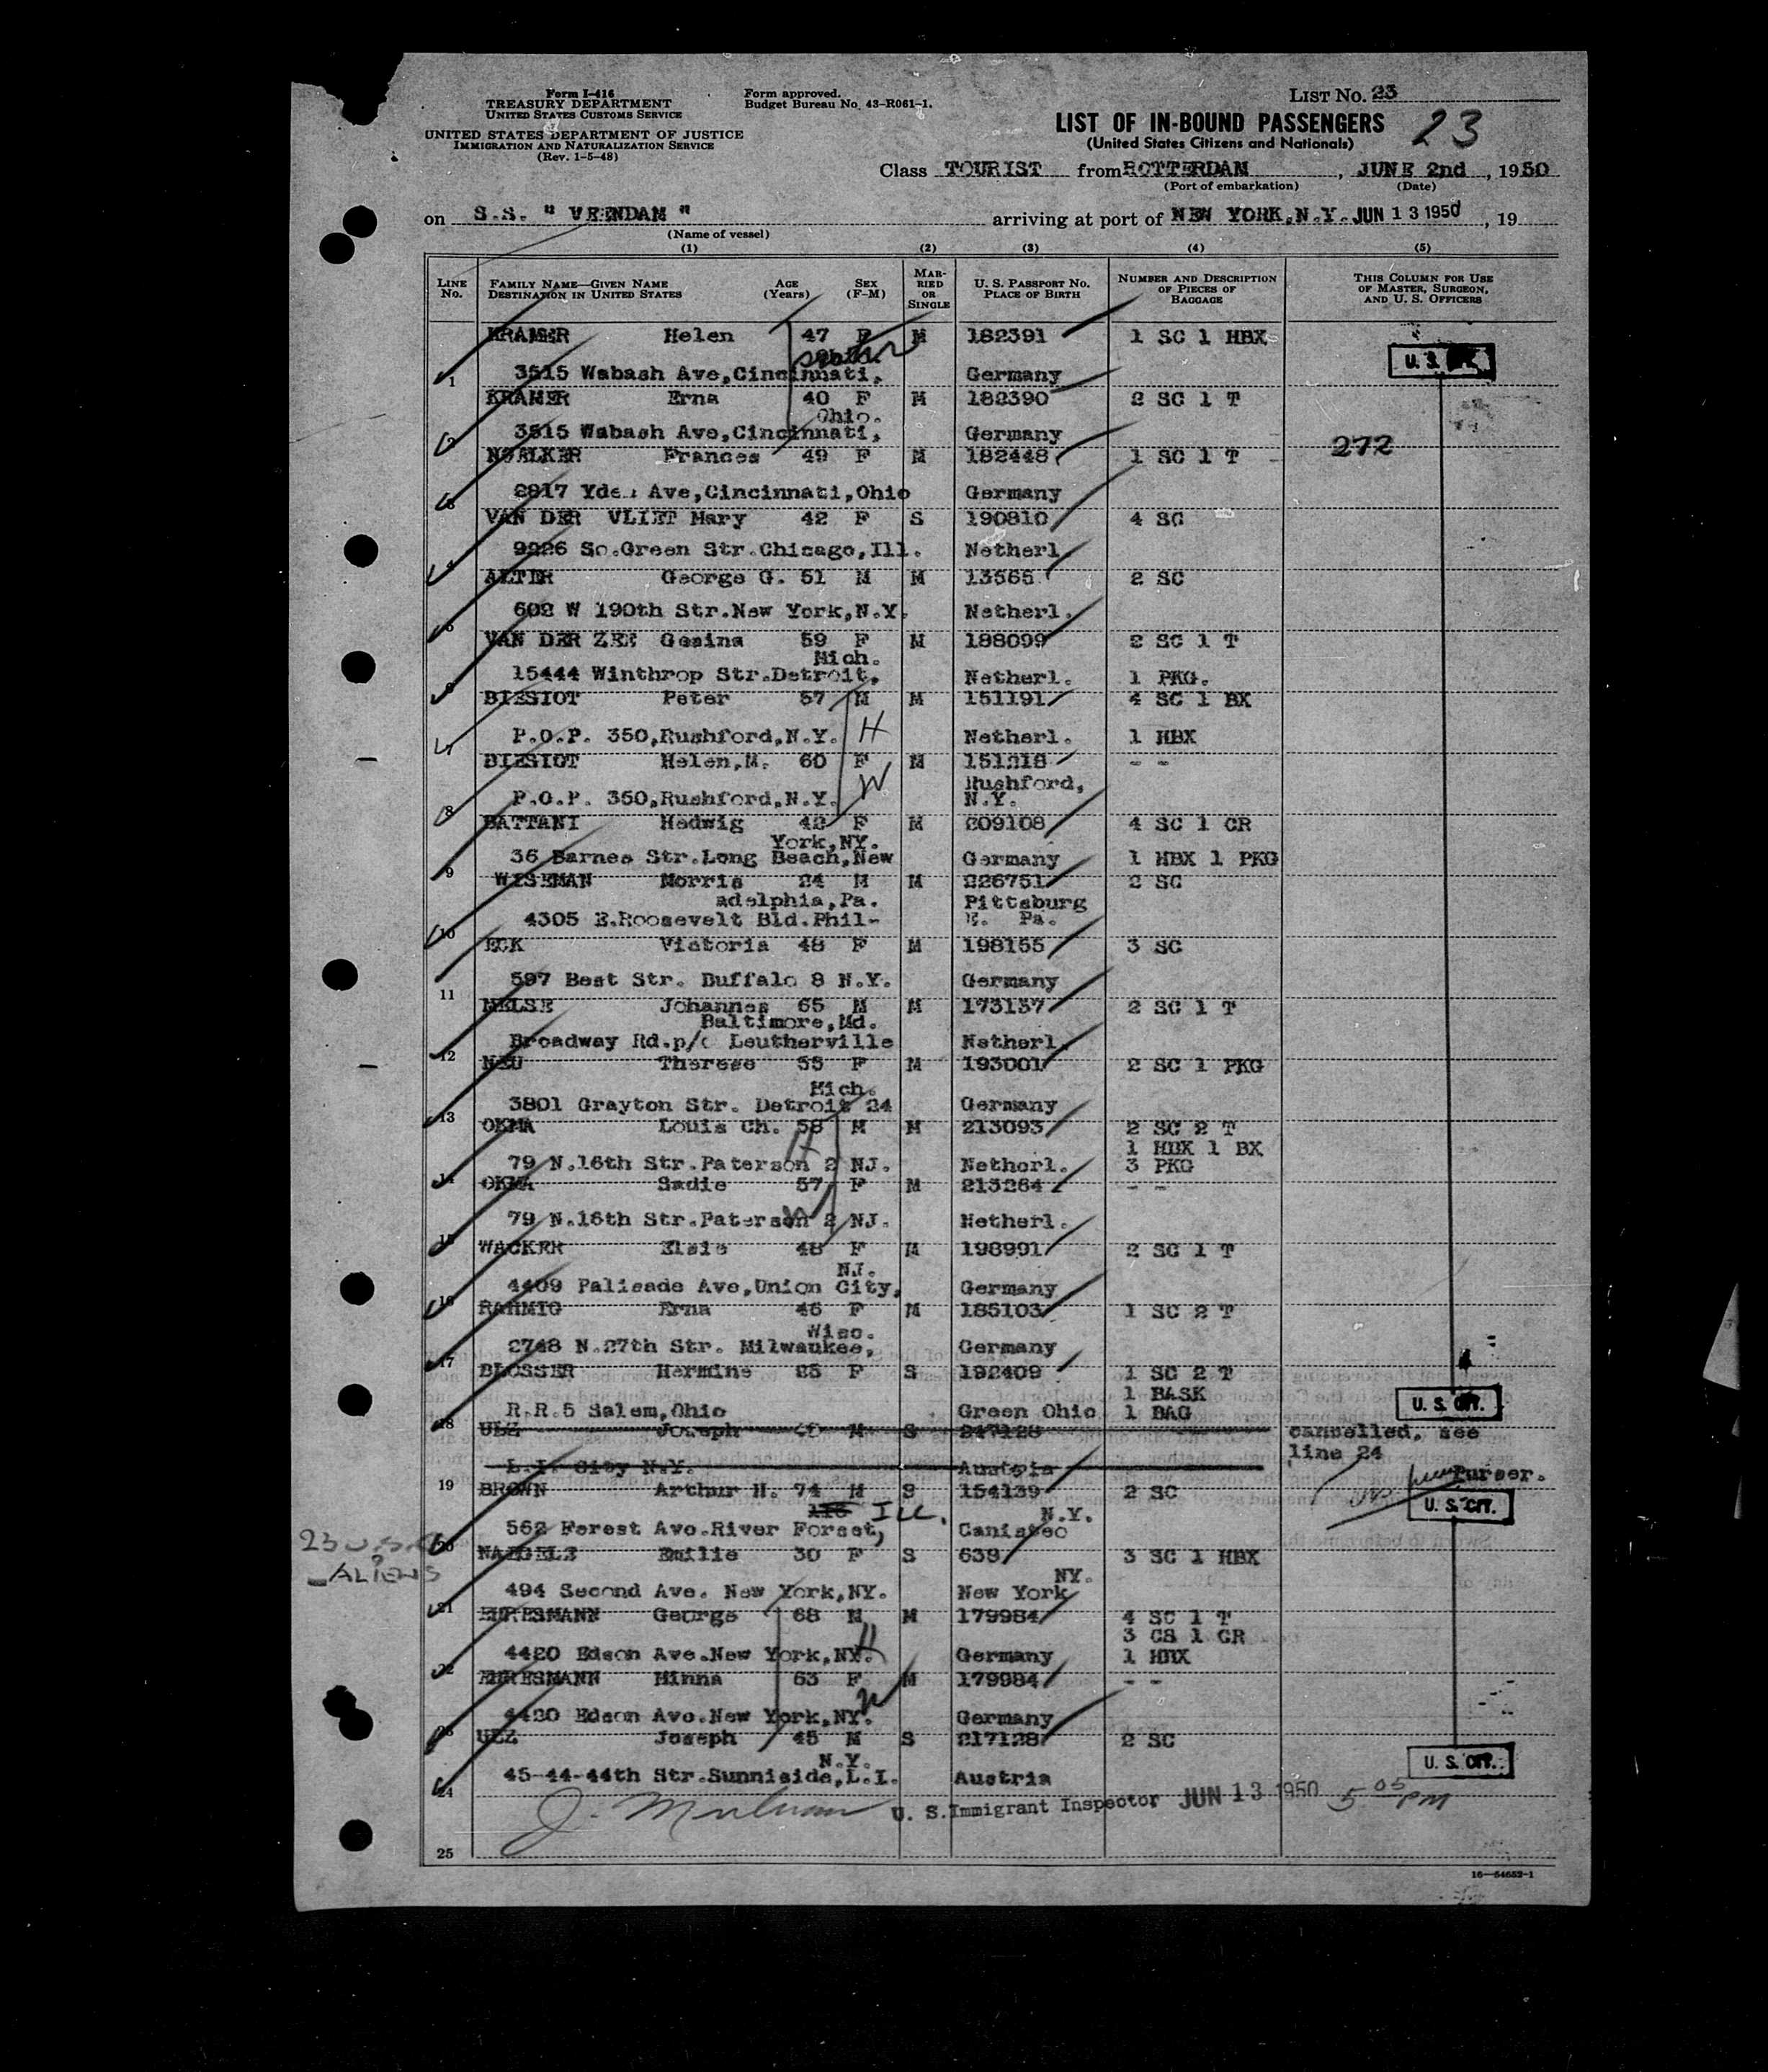 Form I-416
TREASURY DEPARTMENT
UNITED STATES CUSTOMS SERVICE
UNITED STATES DEPARTMENT OF JUSTICE
IMMIGRATION AND NATURALIZATION SERVICE
(Rev. 1-5-48)
Form approved.
Budget Bureau No. 43-R061-1.
LIST No. 23
LIST OF IN-BOUND PASSENGERS 23
(United States Citizens and Nationals)
Class TOURIST from ROTTERDAM, JUNE 2nd, 1950
(Port of embarkation) (Date)
on S.S. " VEENDAM " arriving at port of NEW YORK,N.Y. JUN 13 1950, 19
(Name of vessel)
(1) (2) (3) (4) (5)
LINE No. FAMILY NAME—GIVEN NAME DESTINATION IN UNITED STATES AGE (Years) SEX (F-M) MARRIED OR SINGLE U. S. PASSPORT No. PLACE OF BIRTH NUMBER AND DESCRIPTION OF PIECES OF BAGGAGE THIS COLUMN FOR USE OF MASTER, SURGEON, AND U. S. OFFICERS
KRAMER Helen 47 F M 182391 1 SC 1 HBX
U. S.
1 3515 Wabash Ave,Cincinnati, Germany
KRAMER Erna 40 F M 182390 2 SC 1 T
Ohio.
2 3515 Wabash Ave,Cincinnati, Germany
272
Frances 49 F M 182448 1 SC 1 T
3 2817 Ave,Cincinnati,Ohio Germany
VAN DER VLIET Mary 42 F S 190810 4 SC
4 9926 So.Green Str.Chicago,Ill. Netherl.
ALTER George G. 51 M M 13565 2 SC
5 602 W 190th Str.New York,N.Y. Netherl.
VAN DER ZEE Gesina 59 F M 188099 2 SC 1 T
Mich.
6 15444 Winthrop Str.Detroit, Netherl. 1 PKG.
BIESIOT Peter 57 M M 151191 4 SC 1 BX
7 P.O.P. 350,Rushford,N.Y. H Netherl. 1 HBX
BIESIOT Helen,M. 60 F M 151218 - -
W Rushford,
8 P.O.P. 350,Rushford,N.Y. N.Y.
BATTANI Hedwig 42 F M 209108 4 SC 1 CR
York,NY.
9 36 Barnes Str.Long Beach,New Germany 1 HBX 1 PKG
WISEMAN Morris 24 M M 226751 2 SC
adelphia,Pa. Pittsburg
10 4305 E.Roosevelt Bld.Phil- Pa.
ECK Victoria 48 F M 198155 3 SC
11 597 Best Str. Buffalo 8 N.Y. Germany
MELSE Johannes 65 M M 173137 2 SC 1 T
Baltimore,Md.
12 Broadway Rd.p/o Leutherville Netherl.
NEU Therese 55 F M 193001 2 SC 1 PKG
Mich.
13 3801 Grayton Str. Detroit 24 Germany
OKMA Louis Ch. 58 M M 213093 2 SC 2 T
H 1 HBX 1 BX
14 79 N.16th Str.Paterson 2 NJ. Netherl. 3 PKG
OKMA Sadie 57 F M 213264 - -
15 79 N.16th Str.Paterson 2 NJ. Netherl.
W
WACKER Elsie 48 F M 198991 2 SC 1 T
NJ.
16 4409 Palisade Ave,Union City, Germany
RAHMIG Erna 46 F M 185103 1 SC 2 T
Wisc.
17 2748 N.27th Str. Milwaukee, Germany
BLOSSER Hermine 25 F S 192409 1 SC 2 T
1 BASK
18 R.R.5 Salem,Ohio Green Ohio 1 BAG
U. S. CIT.
UEZ Joseph M S 247128 cancelled, see
line 24
19 L.I. City N.Y. Austria
Purser.
BROWN Arthur H. 74 M S 154139 2 SC
U. S. CIT.
ILL. N.Y.
20 562 Forest Ave.River Forest, Canisteo
23 U.S.
ALIENS
NAEGELE Emilie 30 F S 639 3 SC 1 HBX
NY.
21 494 Second Ave. New York,NY. New York
EHRESMANN George 68 M M 179984 4 SC 1 T
3 CS 1 CR
22 4420 Edson Ave.New York,NY. H Germany 1 HBX
EHRESMANN Minna 63 F M 179984 - -
W
23 4420 Edson Ave.New York,NY. Germany
UEZ Joseph 45 M S 217128 2 SC
N.Y.
U. S. CIT.
24 45-44-44th Str.Sunniside,L.I. Austria
J. U. S. Immigrant Inspector JUN 13 1950 5 05 PM
25
16—54652-1